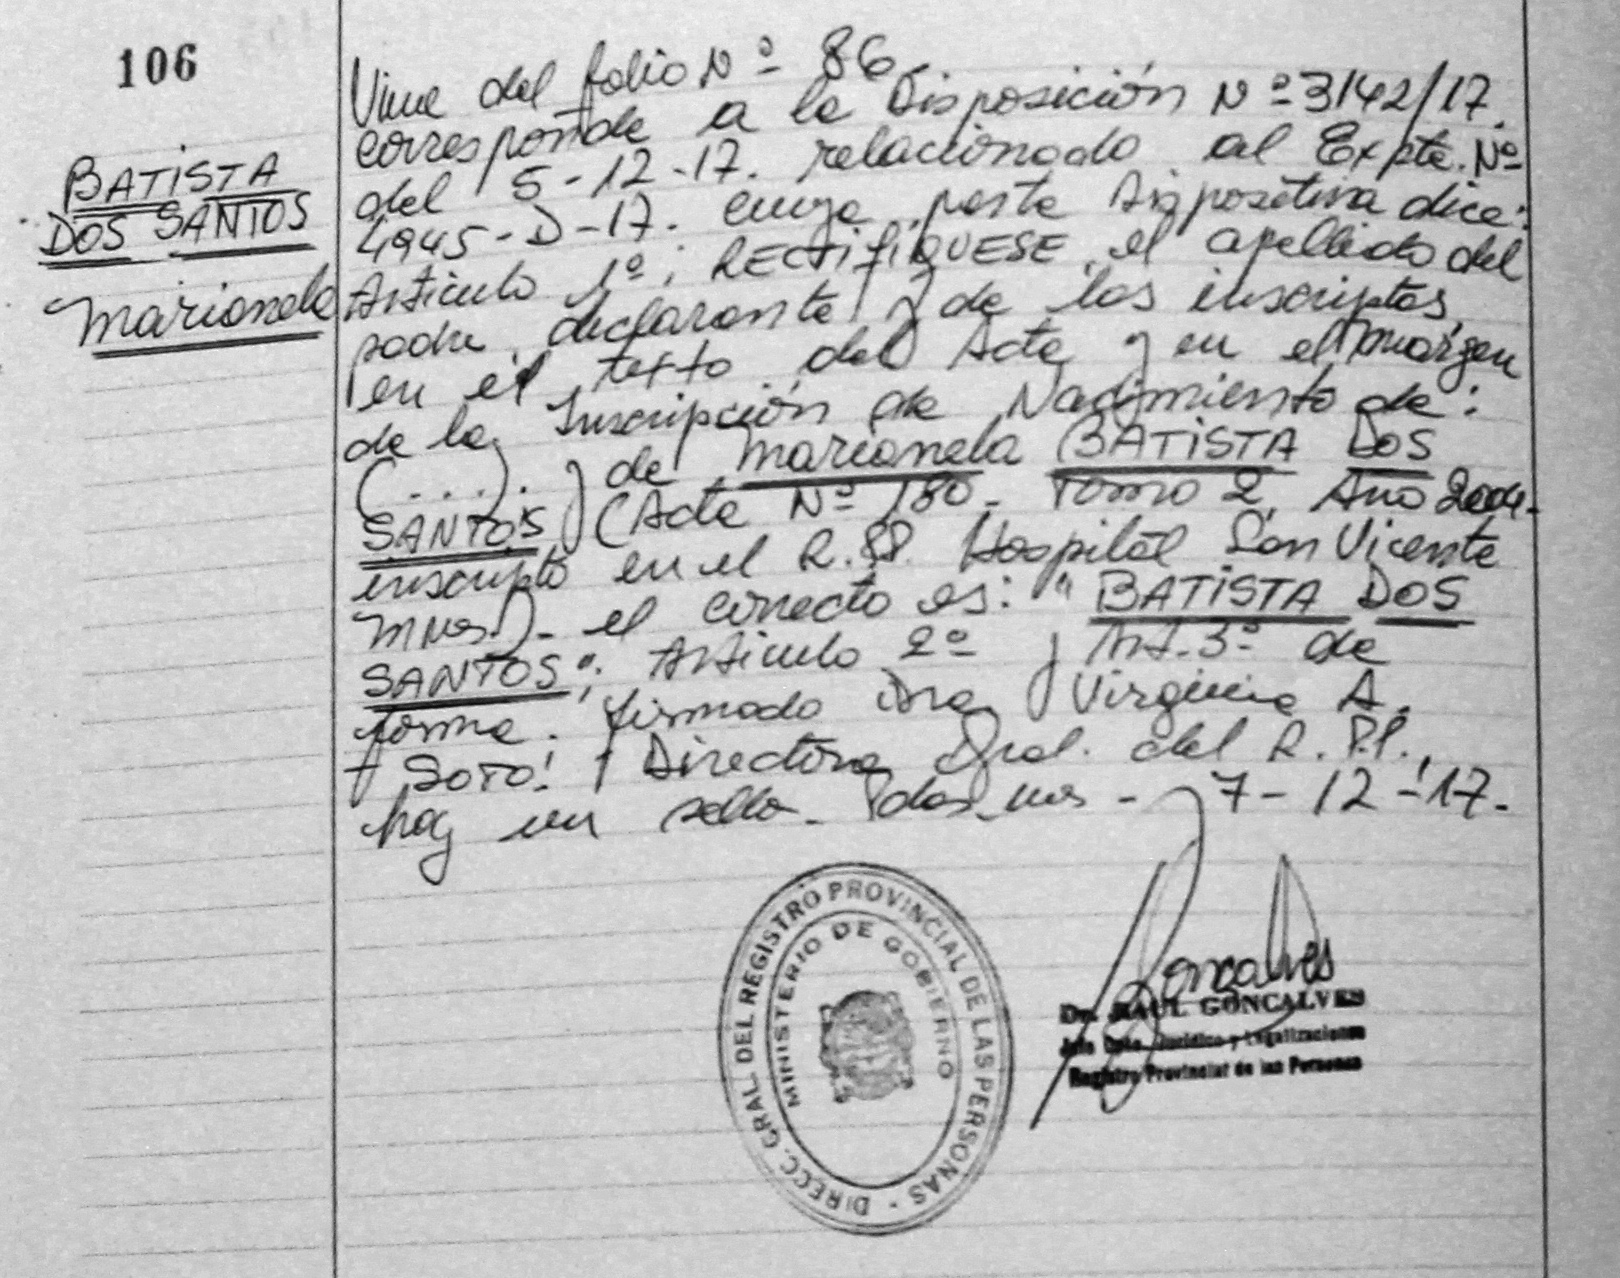 106
BATISTA
DOS SANTOS
Marianela
Viene del folio Nº 86
corresponde a la Disposición Nº 3142/17
del 5-12-17. relacionado al Expte. Nº
4945-D-17. cuya parte dispositiva dice:
Artículo 1º: RECTIFIQUESE el apellido del
padre, declarante y de los inscriptos
en el texto del Acta y en el margen
de la Inscripción de Nacimiento de:
(....). y de Marianela BATISTA DOS
SANTOS (Acta Nº 180. Tomo 2, Año 2004.
inscripto en el R.P.P. Hospital San Vicente
Mnes). el correcto es: "BATISTA DOS
SANTOS"; Artículo 2º y Art. 3º de
forma. firmado Dra. Virginia A.
SOTO. Directora Gral. del R.P.P.,
hay un sello. 7-12-17.
DIRECC. GRAL. DEL REGISTRO PROVINCIAL DE LAS PERSONAS -
MINISTERIO DE GOBIERNO
Goncalves
Dr. RAUL GONCALVES
Jefe Dpto. Jurídico y Legalizaciones
Registro Provincial de las Personas